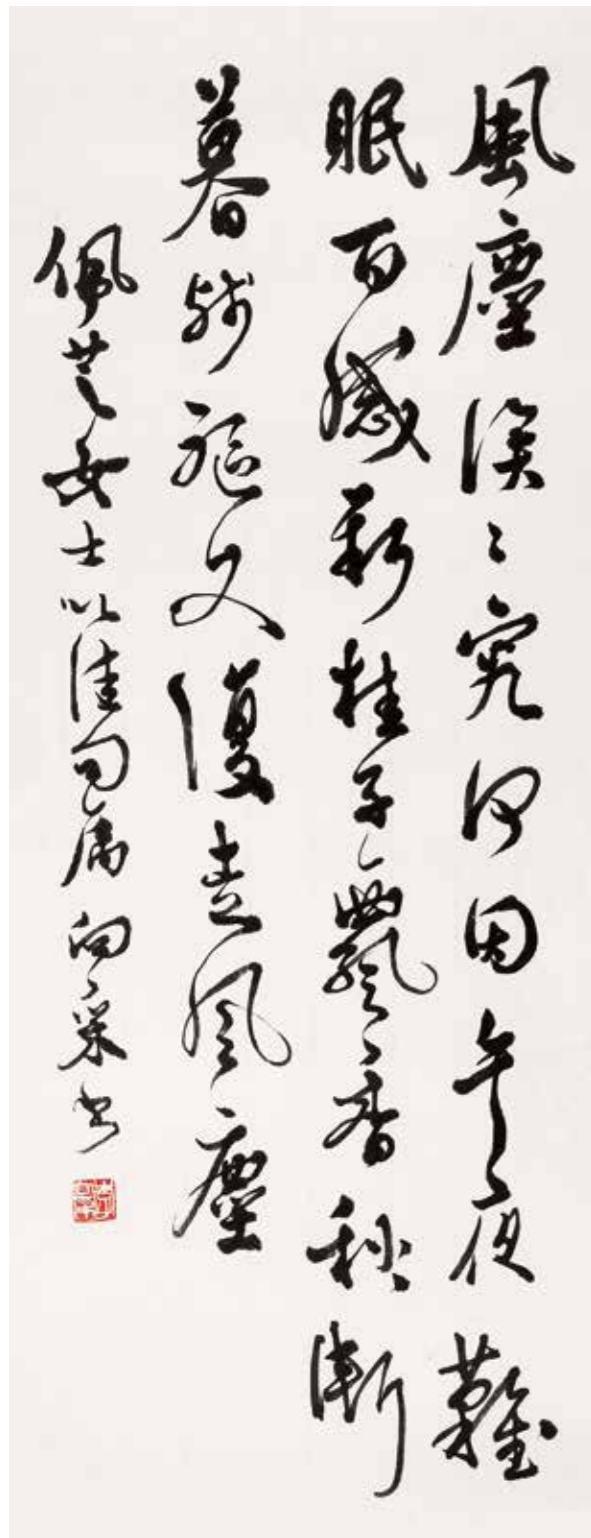 風塵僕〻究何因午夜難
眠百感新桂子飄香秋漸
暮形軀又復走風塵
佩芝女士以佳句属 向采書